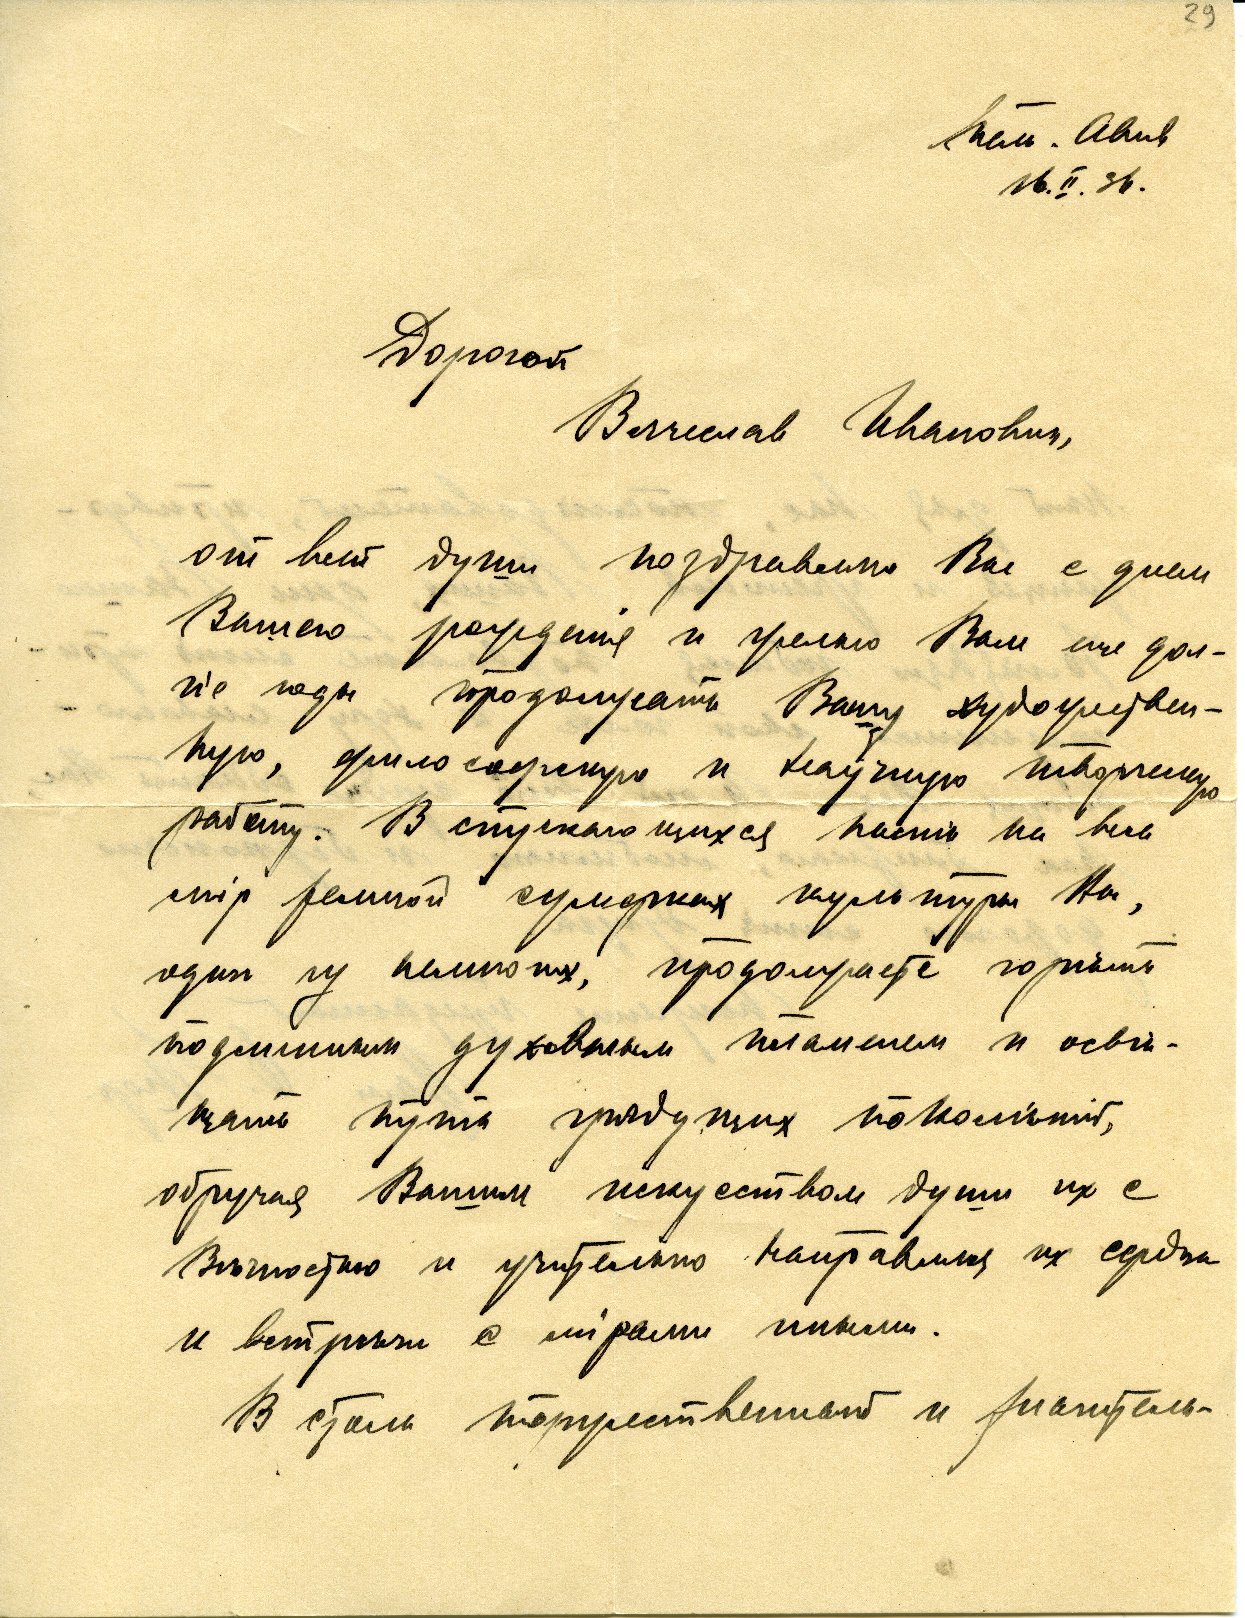 29
Тель-Авив
16.II.36.
Дорогой
Вячеслав Иванович,
от всей души поздравляю Вас с днем
Вашего рождения и желаю Вам еще дол-
гiе годы продолжать Вашу художествен-
ную, философскую и научную творческую
работу. В спускающихся ныне на весь
мiр сумерках культуры Вы,
один из немногих, продолжаете горѣть
подлинным духовным пламенем и освѣ-
щать пути грядущих поколѣнiй,
обручая Вашим искусством души их с
Вѣчностью и учительно направляя их сердца
к встрѣчи с мiрами иными.
В столь торжественный и значитель-